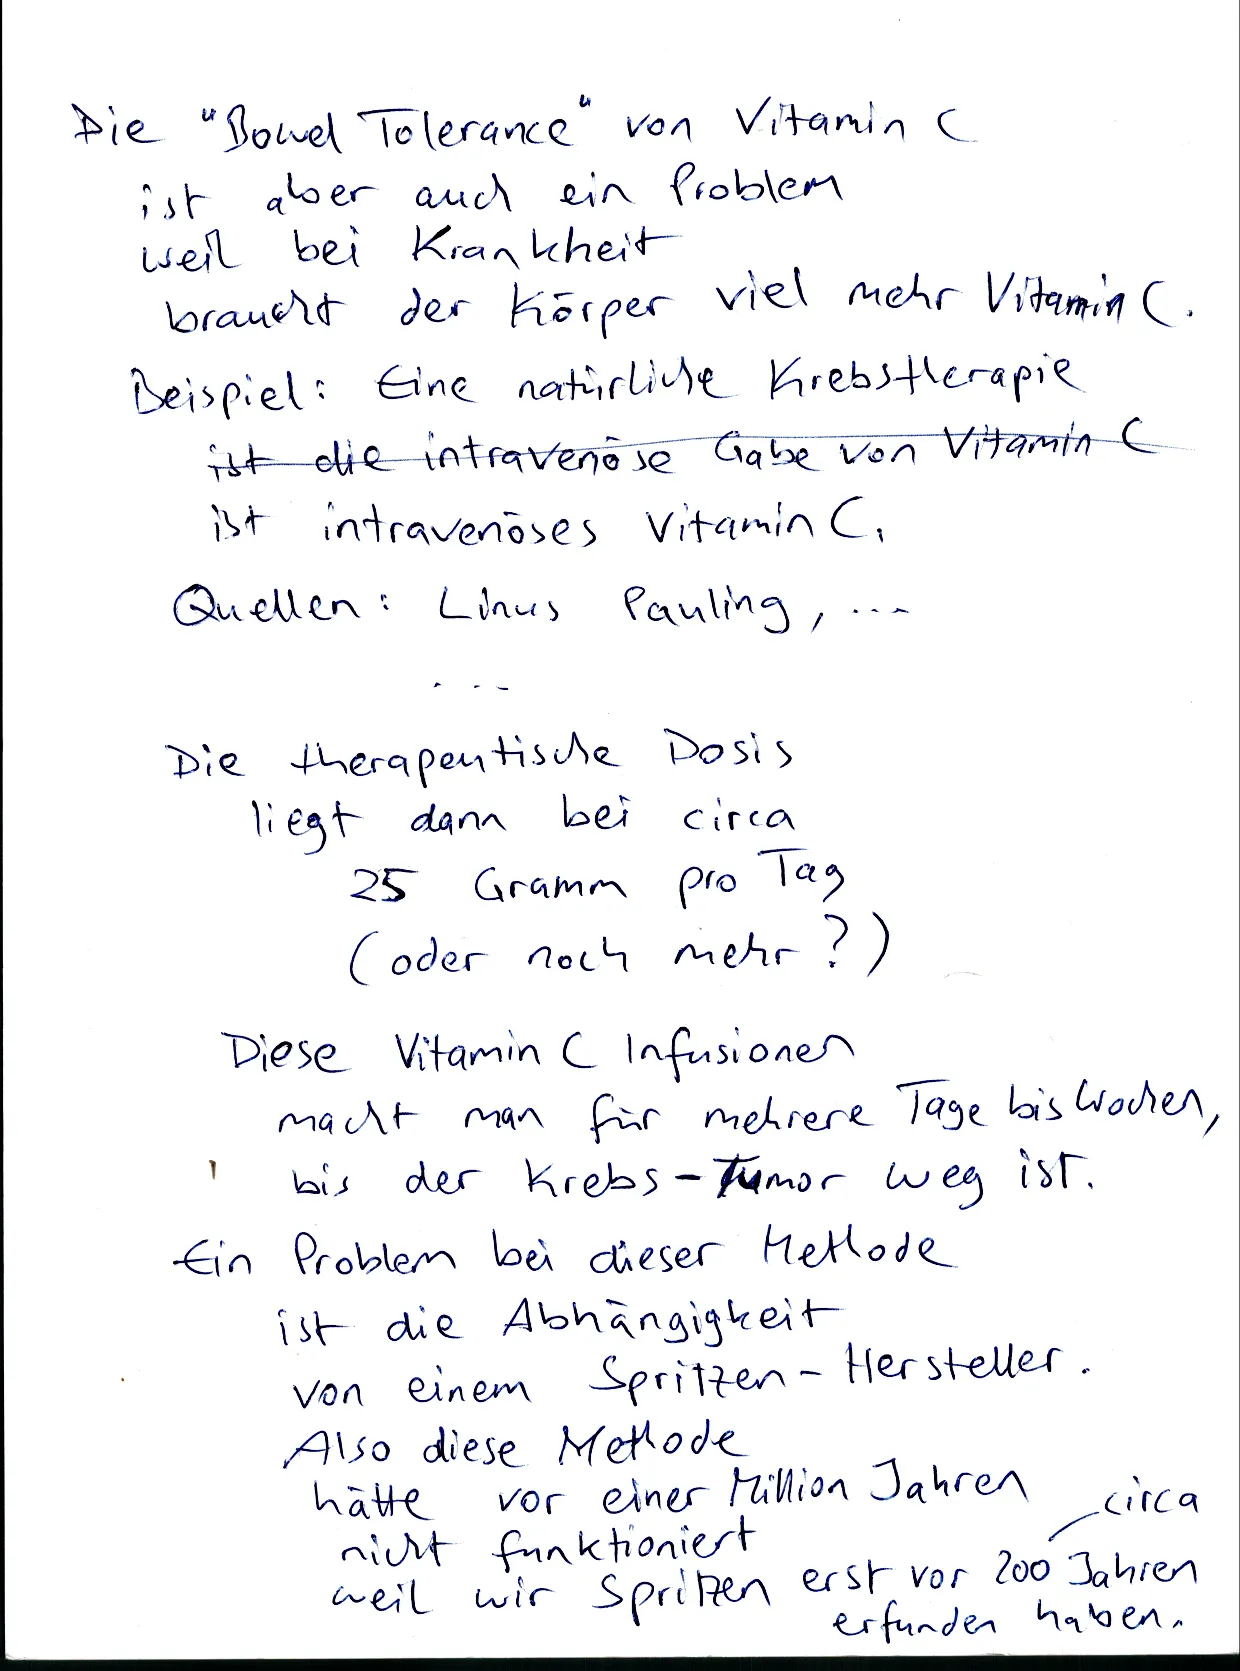 Die "Bowel Tolerance" von Vitamin C
ist aber auch ein Problem
weil bei Krankheit
braucht der Körper viel mehr Vitamin C.
Beispiel: Eine natürliche Krebstherapie
ist die intravenöse Gabe von Vitamin C
ist intravenöses Vitamin C.
Quellen: Linus Pauling, ...
...
Die therapeutische Dosis
liegt dann bei circa
25 Gramm pro Tag
(oder noch mehr?)
Diese Vitamin C Infusionen
macht man für mehrere Tage bis Wochen,
bis der Krebs-Tumor weg ist.
Ein Problem bei dieser Methode
ist die Abhängigkeit
von einem Spritzen-Hersteller.
Also diese Methode
hätte vor einer Million Jahren
nicht funktioniert
circa
weil wir Spritzen erst vor 200 Jahren
erfunden haben.